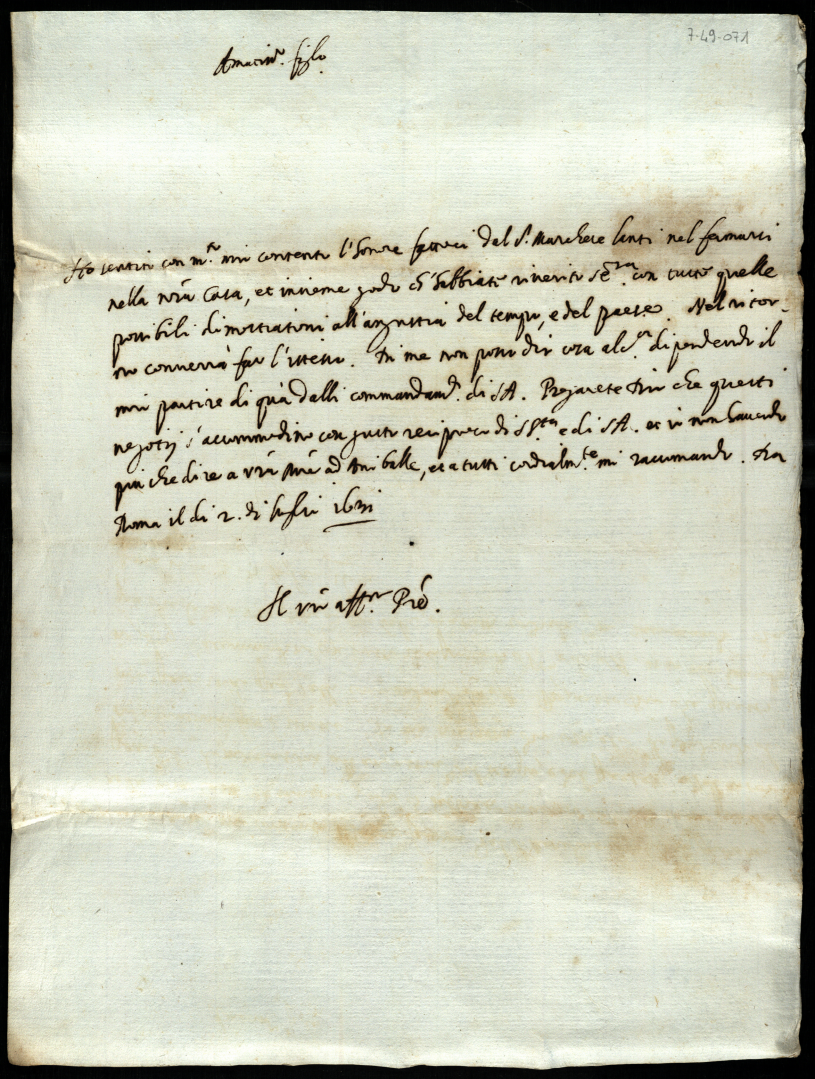 7-49-071
Amatiss.º figlo
Ho sentito con m.to mio contento l'honore fattoci dal S.r Marchese Lanti nel fermarsi
nella nr̃a Casa, et insieme godo ch' habbiate riverito S. Ecc.za con tutte quelle
possibili dimostrationi all'angustia del tempo, e del paese. Nel ritor-
no converrà far l'istesso. Di me non posso dir cosa alc.na dipendendo il
mio partire di quà dalli commandam.ti di SA. Pregarete Dio che questi
negotij s'accommodino con gusto reciproco di SS.tà e di SA. et io non havendo
più che dire a vr̃a Mr̃e ad Anibale, et a tutti cordialm.te mi raccomando. Da
Roma il di 2. di luglio 1631
Il vr̃o aff.mo Prẽ.